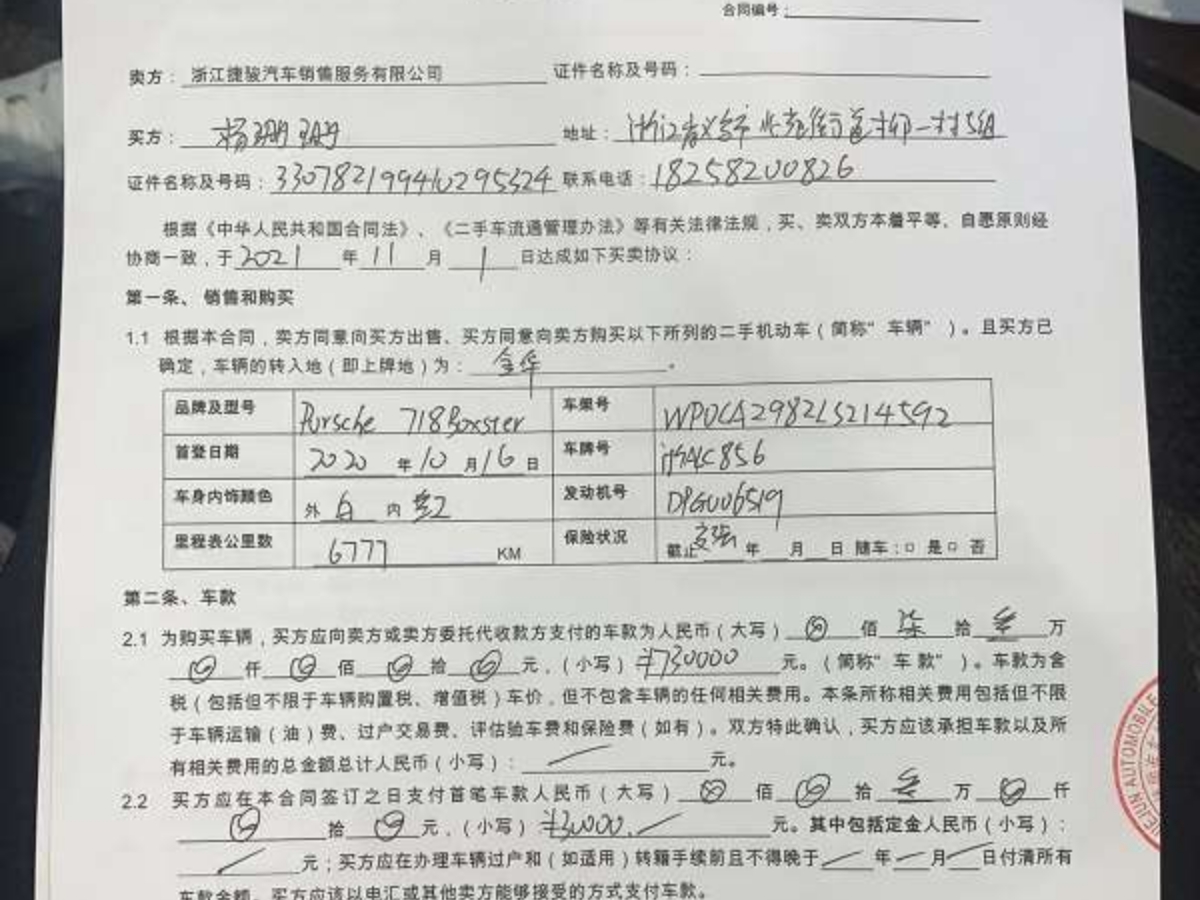 合同编号：
卖方： 浙江捷骏汽车销售服务有限公司 证件名称及号码：
买方： 杨珊珊 地址： 浙江省义乌市北苑街道 一村5组
证件名称及号码： 330782199410295324 联系电话： 18258200826
根据《中华人民共和国合同法》、《二手车流通管理办法》等有关法律法规，买、卖双方本着平等、自愿原则经
协商一致，于 2021 年 11 月 1 日达成如下买卖协议：
第一条、 销售和购买
1.1 根据本合同，卖方同意向买方出售、买方同意向卖方购买以下所列的二手机动车（简称“车辆”）。且买方已
确定，车辆的转入地（即上牌地）为： 金华 。
品牌及型号 Porsche 718 Boxster 车架号 WP0CA2982LS214592
首登日期 2020 年 10 月 16 日 车牌号 856
车身内饰颜色 外 白 内 红 发动机号 006519
里程表公里数 6777 KM 保险状况 截止 交强 年 月 日 随车：□ 是□ 否
第二条、车款
2.1 为购买车辆，买方应向卖方或卖方委托代收款方支付的车款为人民币（大写） 佰 柒 拾 叁 万
仟 佰 拾 元，（小写） ¥730000 元。（简称“车款”）。车款为含
税（包括但不限于车辆购置税、增值税）车价，但不包含车辆的任何相关费用。本条所称相关费用包括但不限
于车辆运输（油）费、过户交易费、评估验车费和保险费（如有）。双方特此确认，买方应该承担车款以及所
有相关费用的总金额总计人民币（小写）： / 元。
2.2 买方应在本合同签订之日支付首笔车款人民币（大写） 佰 拾 叁 万 仟
拾 元，（小写） ¥30000 / 元。其中包括定金人民币（小写）：
/ 元；买方应在办理车辆过户和（如适用）转籍手续前且不得晚于 / 年 / 月 / 日付清所有
车款余额。买方应该以电汇或其他卖方能够接受的方式支付车款。
JIEJUN AUTOMOBILE